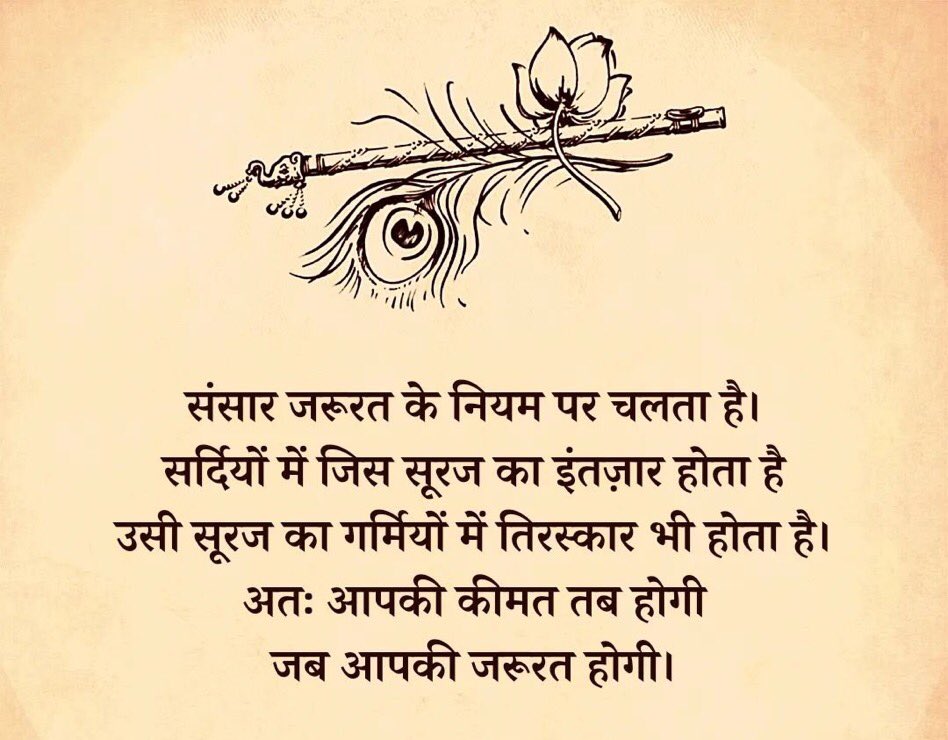 संसार जरूरत के नियम पर चलता है।
सर्दियों में जिस सूरज का इंतज़ार होता है
उसी सूरज का गर्मियों में तिरस्कार भी होता है।
अतः आपकी कीमत तब होगी
जब आपकी जरूरत होगी।